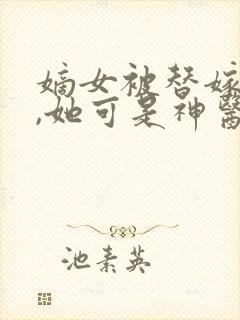 嫡女被替嫁
,她可是神醫
池素英